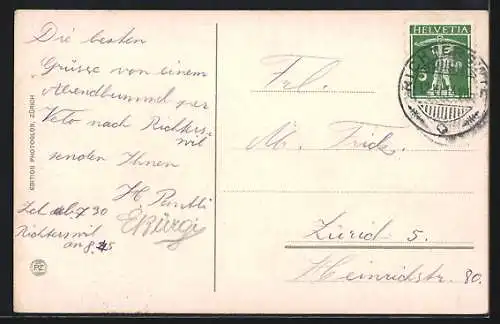 Die besten
Grüsse von einem
Abendbummel per
Velo nach Richters-
wil
senden Ihnen
H.
E. Bürgi
ab 7 30
Richterswil
an 8.
EDITION PHOTOGLOB, ZÜRICH
PZ
HELVETIA
5
Frl.
M. Frick
Zürich 5.
Heinrichstr. 80.